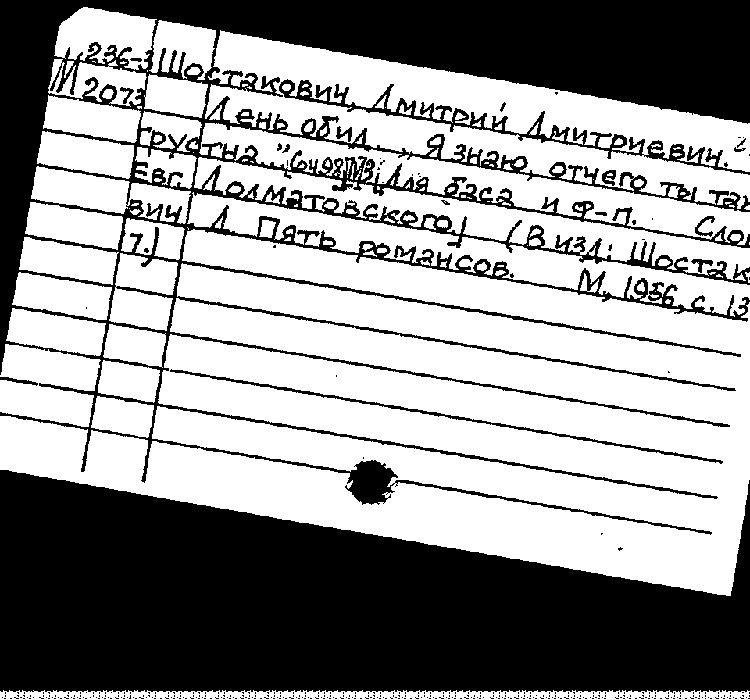 М 236-3 Шостакович, Дмитрий Дмитриевич.
2073 День обид... „Я знаю, отчего ты так
грустна..." [Соч 98 №3. Для баса и ф-п. Слов
Евг. Долматовского] (В изд: Шостак
вич, Д. Пять романсов. М, 1956, с. 13
7.)